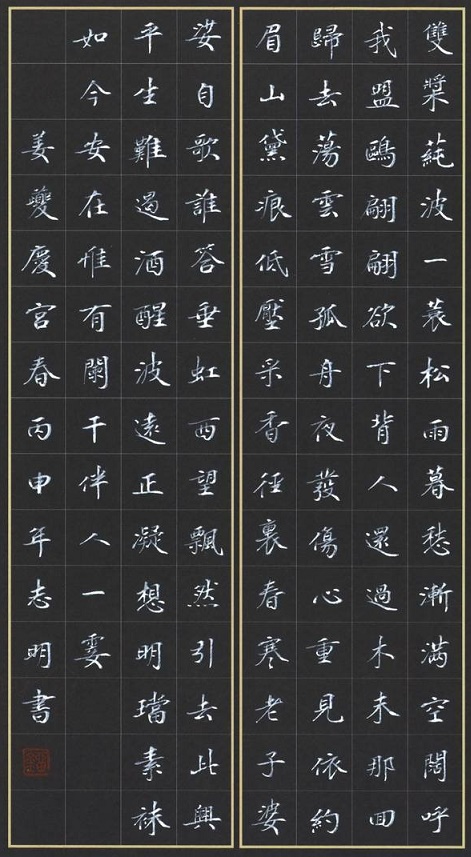 雙槳蒓波一蓑松雨暮愁漸滿空闊呼
我盟鷗翩翩欲下背人還過木末那囬
歸去蕩雲雪孤舟夜發傷心重見依約
眉山黛痕低壓采香徑裏春寒老子婆
娑自歌誰答垂虹西望飄然引去此興
平生難遏酒醒波遠正凝想明璫素袜
如今安在惟有闌干伴人一霎
姜夔慶宮春丙申年志明書